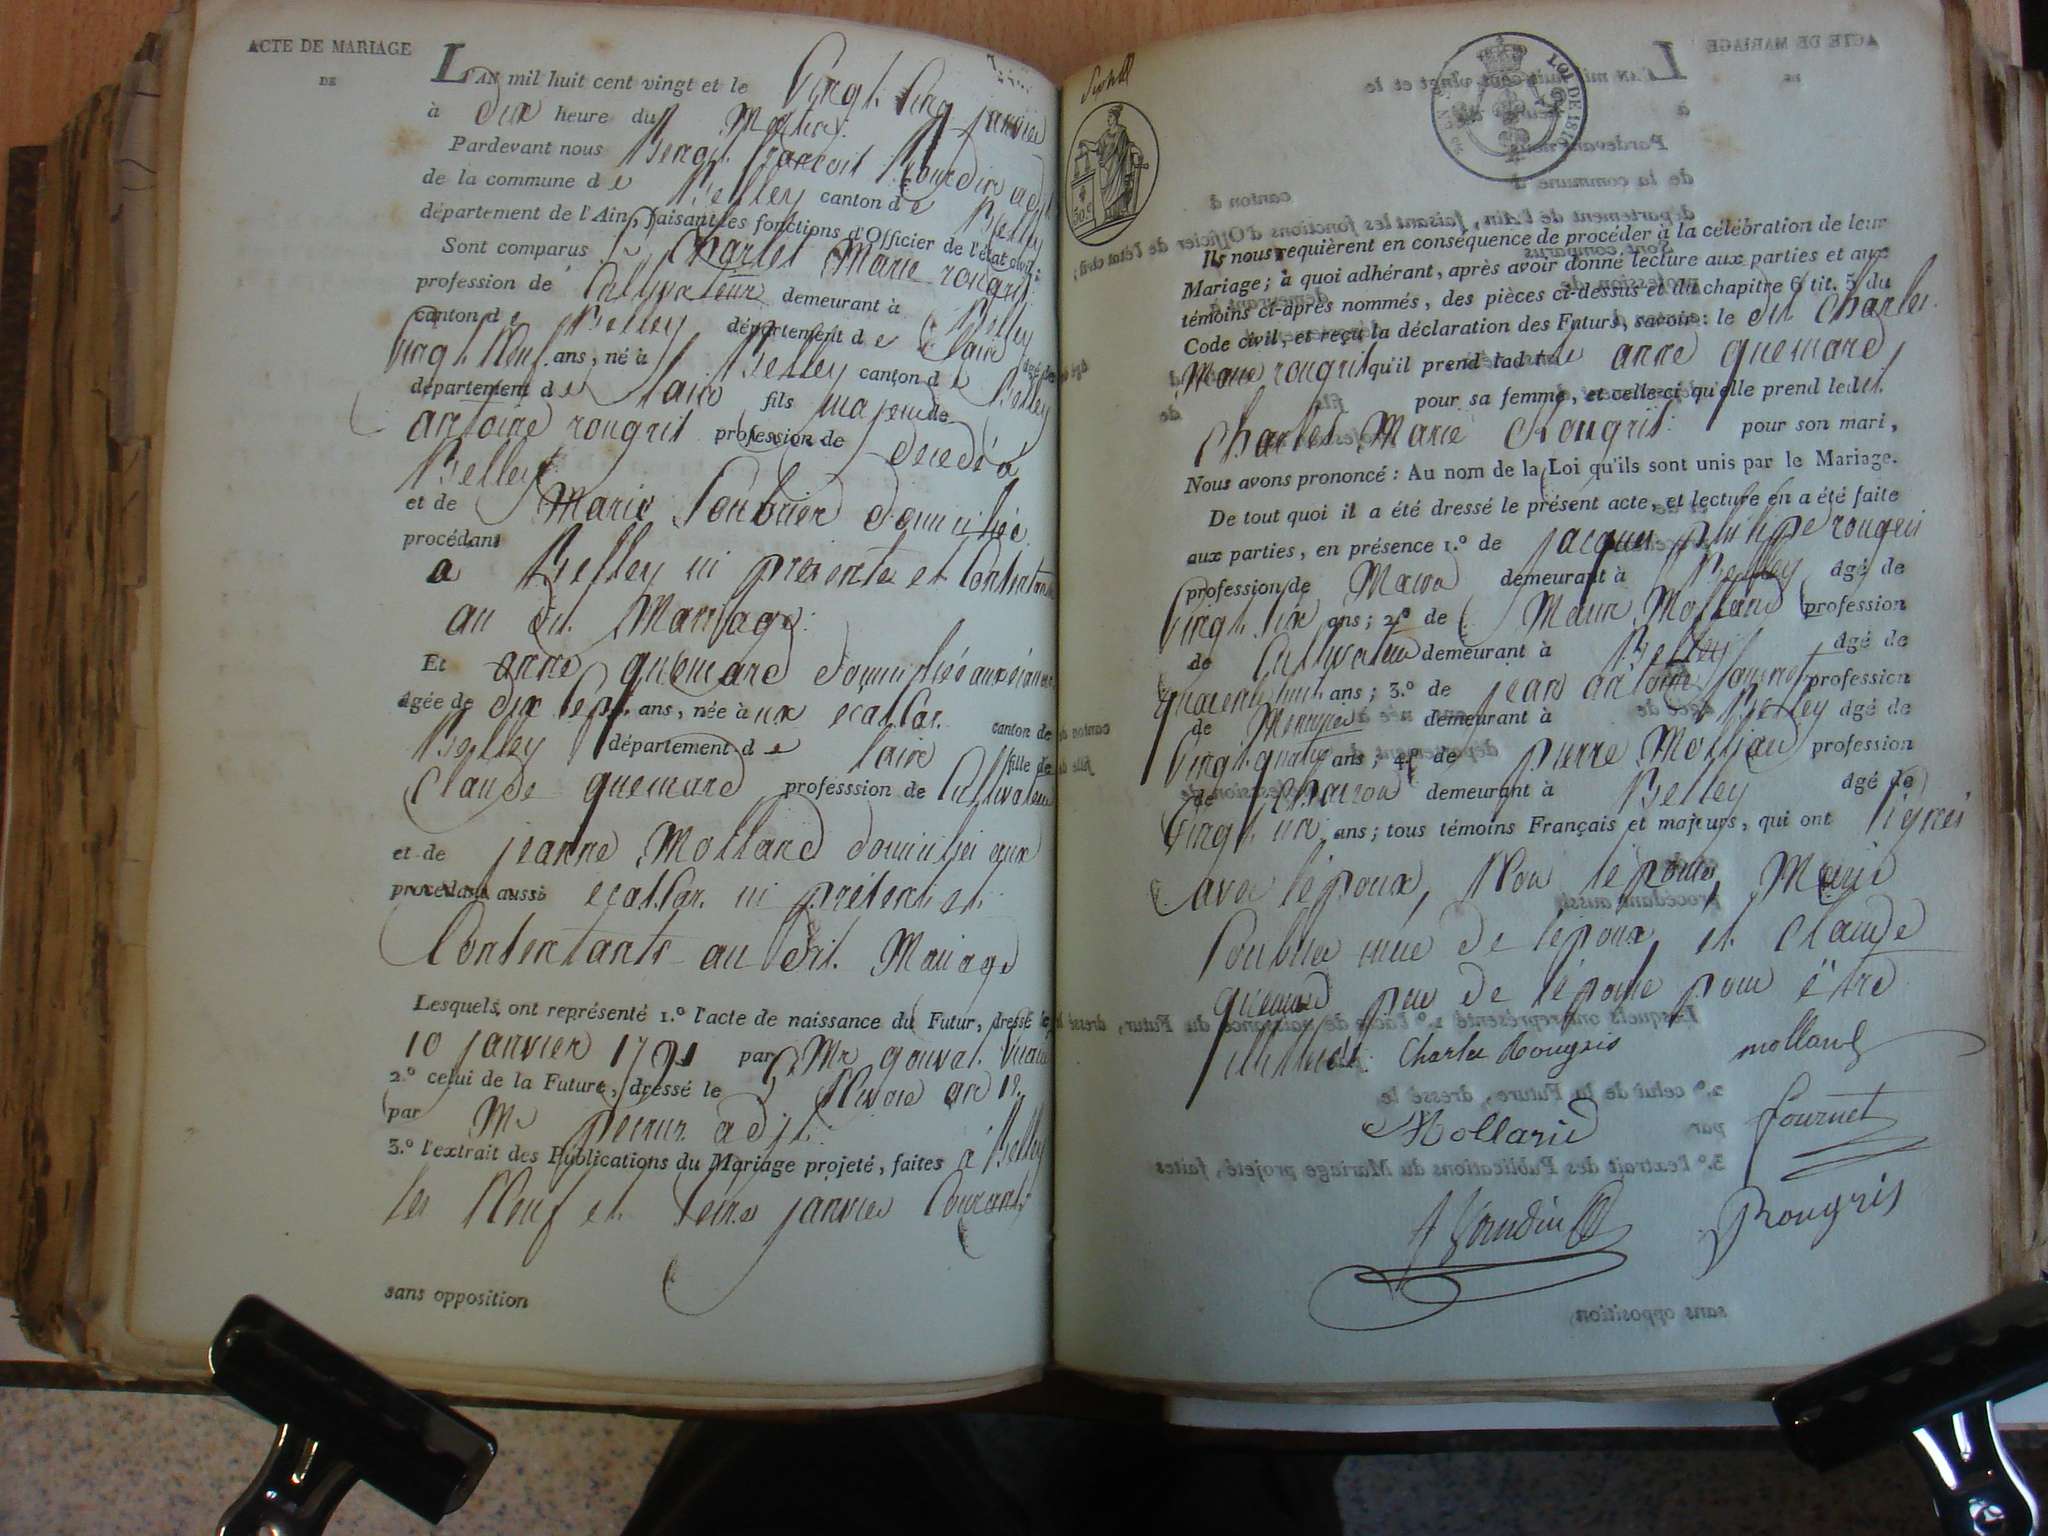 ACTE DE MARIAGE
DE
L'AN mil huit cent vingt et le Vingt Cinq janvier
à Dix heure du Matin
Pardevant nous
de la commune de Belley canton de Belley
département de l'Ain, faisant les fonctions d'Officier de l'état civil;
Sont comparus Charles Marie rougris
profession de Cultivateur demeurant à Belley
canton de Belley département de Lain âgé de
Vingt Neuf ans, né à Belley canton de Belley
département de Lain fils majeur de
antoine rougris profession de décédé a
Belley
et de Marie Soubrier domiciliée
procédant
a Belley ici présente et Consentante
au dit Mariage
Et anne quemard domiciliée aux écassas
âgée de dix sept ans, née à ux ecassas canton de
Belley département de lain fille de
Claude quemard professsion de Cultivateur
et de jeanne Molland domicilies aux
procédant aussi ecassas ici présents et
Consentants au dit Mariage
Lesquels ont représenté 1.º l'acte de naissance du Futur, dressé le
10 janvier 1791 par Mr gouvat vicaire
2.º celui de la Future, dressé le Nivose an 12
par Mr adjt
3.º l'extrait des Publications du Mariage projeté, faites à Belley
les Neuf et Seize janvier Courant
sans opposition
LOI DE 1816
50 c
Ils nous requièrent en conséquence de procéder à la célébration de leur
Mariage; à quoi adhérant, après avoir donné lecture aux parties et aux
témoins ci-après nommés, des pièces ci-dessus et du chapitre 6 tit. 5 du
Code civil, et reçu la déclaration des Futurs, savoir: le dit Charles
Marie rougris qu'il prend ladite anne quemard
pour sa femme, et celle-ci qu'elle prend ledit
Charles Marie Rougris pour son mari,
Nous avons prononcé: Au nom de la Loi qu'ils sont unis par le Mariage.
De tout quoi il a été dressé le présent acte, et lecture en a été faite
aux parties, en présence 1.º de jacques philipe rougris
profession de Macon demeurant à Belley âgé de
Vingt six ans; 2.º de Molland profession
de Cultivateur demeurant à Belley âgé de
quarente huit ans; 3.º de jean antoine fournet profession
de Menuisier demeurant à Belley âgé de
Vingt quatre ans; 4.º de pierre Mollard profession
de Charron demeurant à Belley âgé de
Vingt six ans; tous témoins Français et majeurs, qui ont signés
avec lépoux, Non lépouse, Marie
Soubrier mere de lépoux et Claude
quemard pere de lépouse pour être
illiterés Charles Rougris molland
Mollard fournet
Rougris